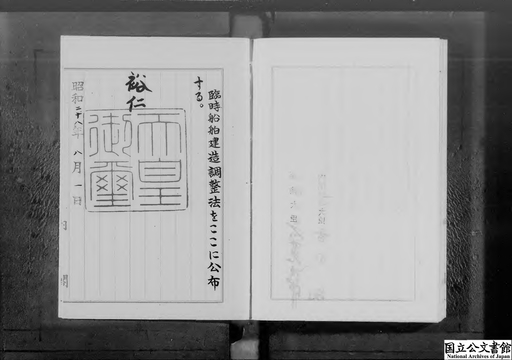 臨時船舶建造調整法をここに公布
する。
裕仁
天皇
御璽
昭和二十八年八月一日
国立公文書館
National Archives of Japan